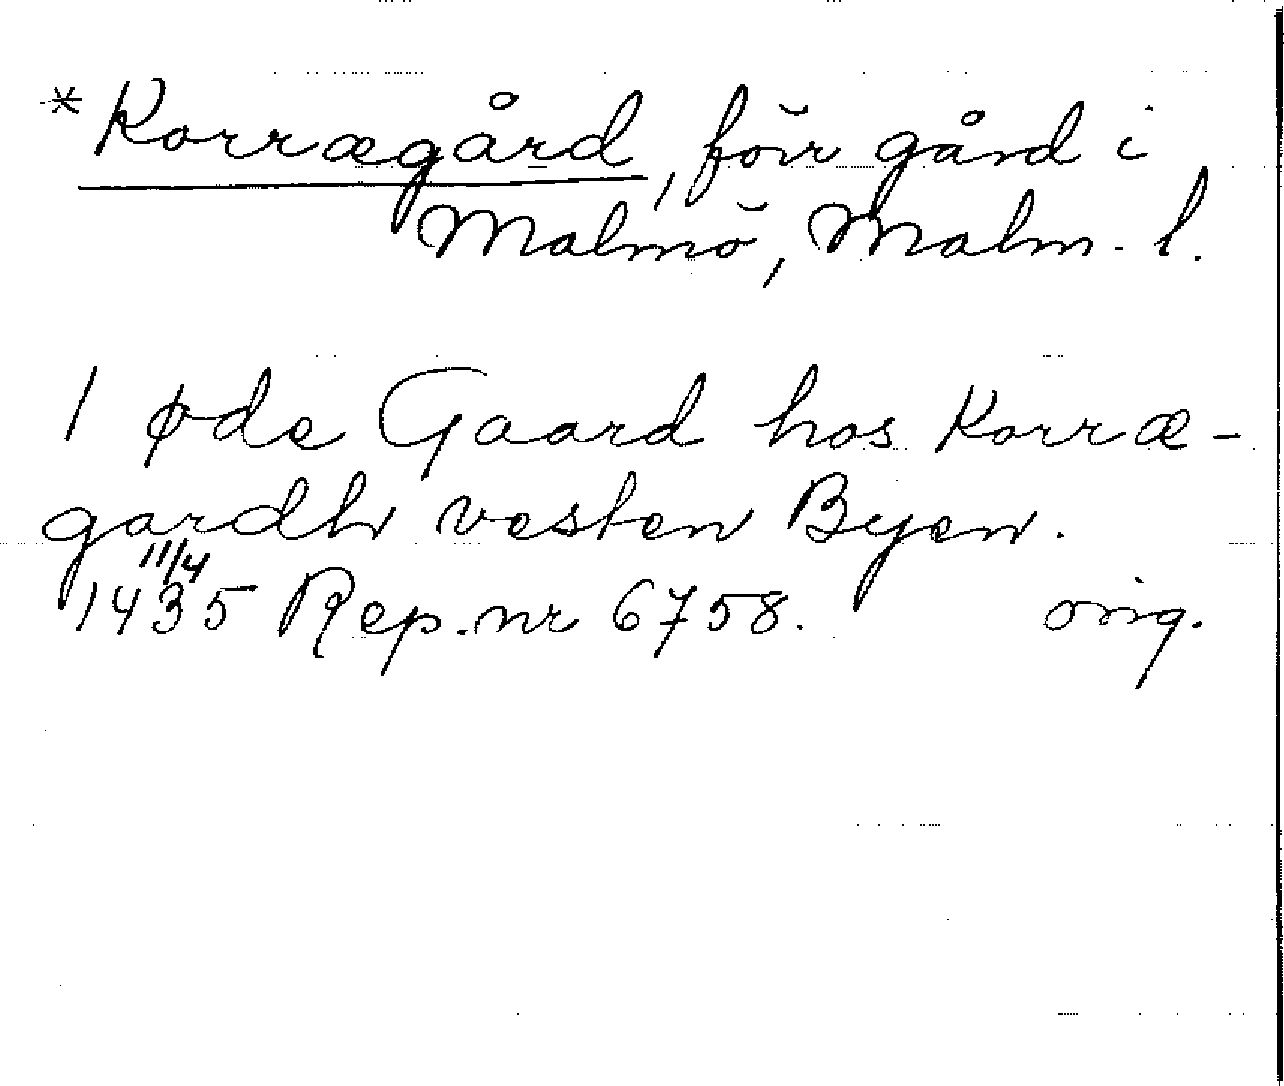 *Korrægård, förr gård i
Malmö, Malm. l.
1 øde Gaard hos Korræ-
gardh vesten Byen.
11/4
1435 Rep. nr 6758. orig.